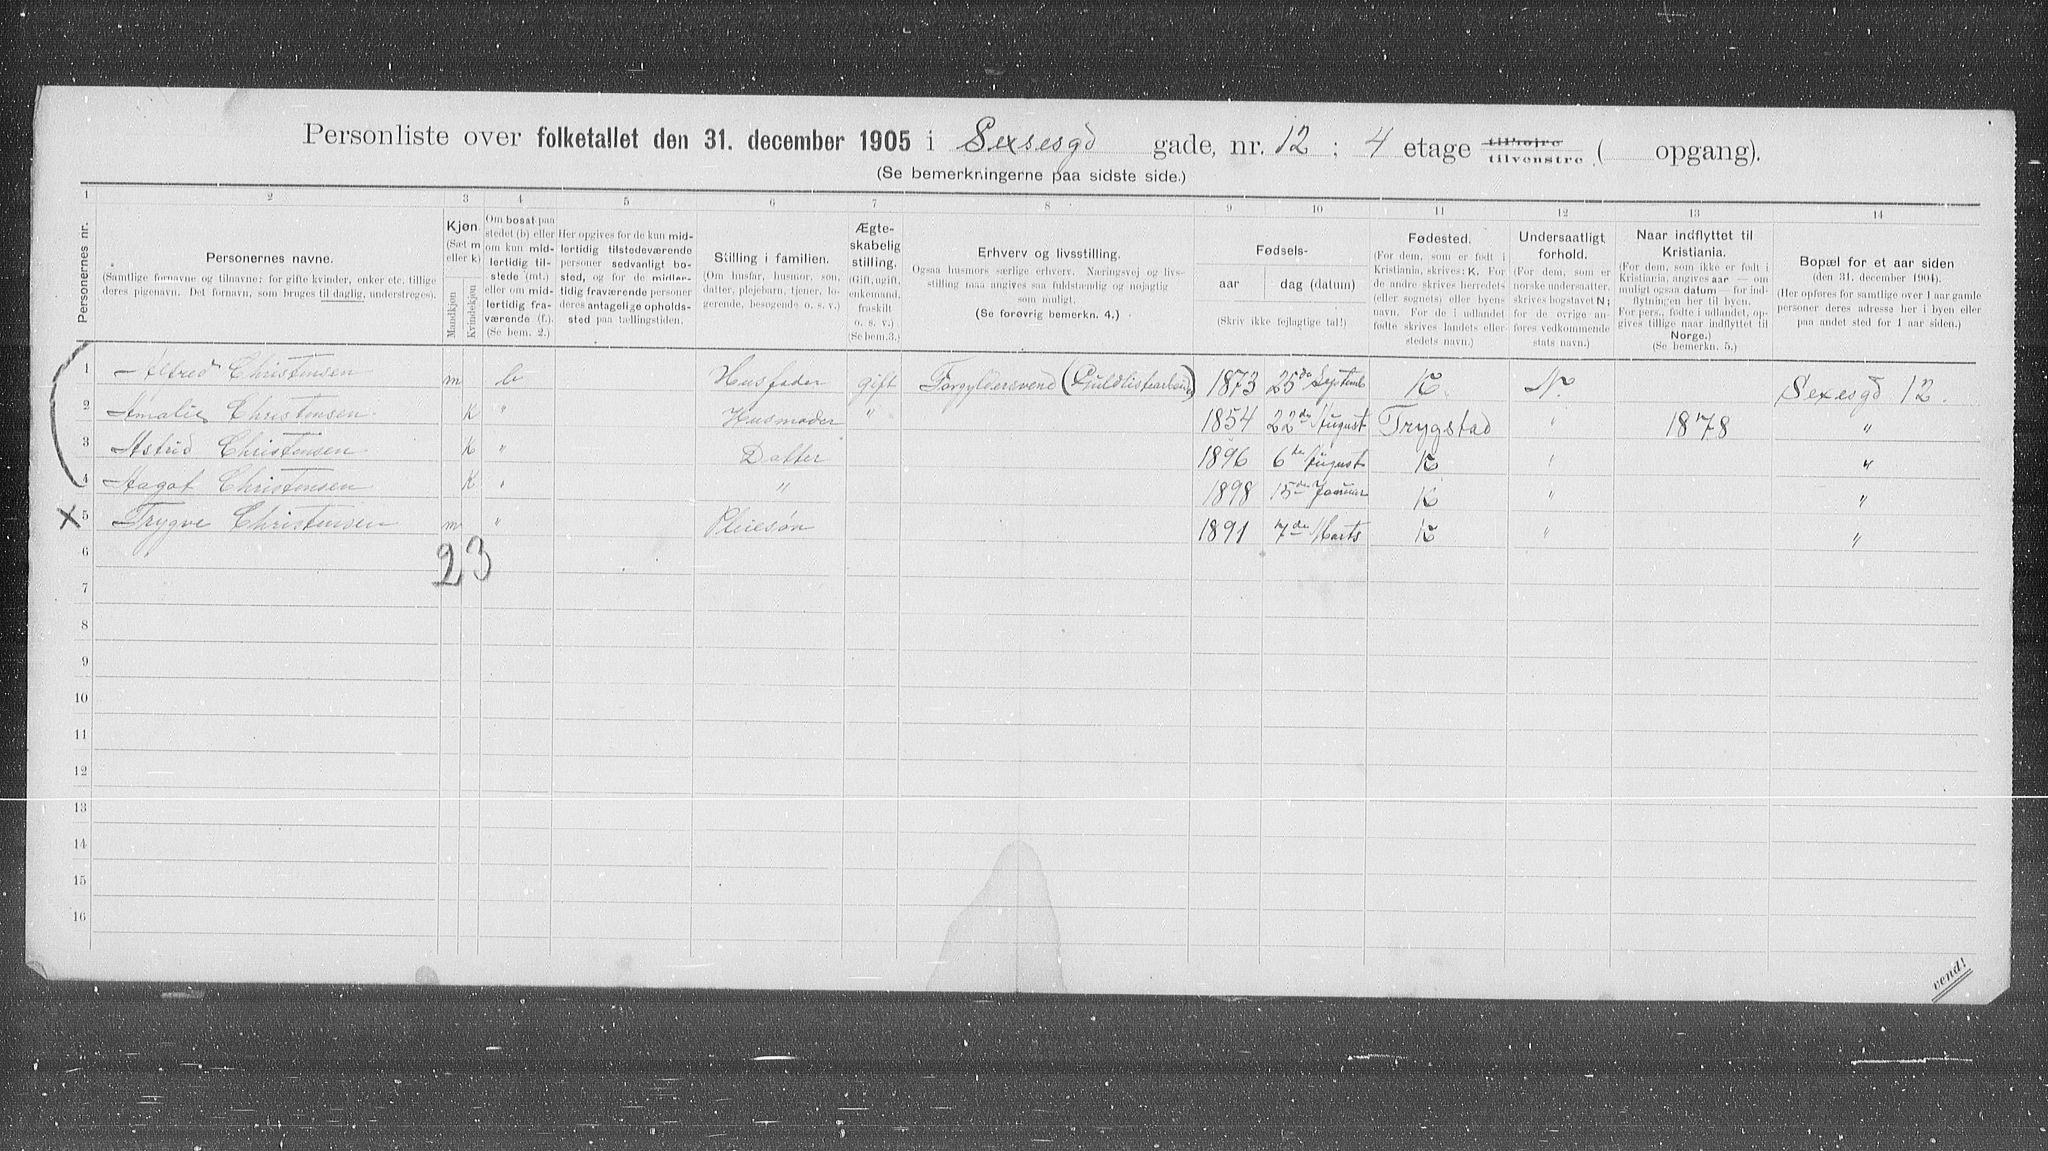 Personliste over folketallet den 31. december 1905 i Sexesgd gade, nr. 12 ; 4 etage tilhøjre tilvenstre ( opgang).
(Se bemerkningerne paa sidste side.)
1 2 3 4 5 6 7 8 9 10 11 12 13 14
Personernes nr.
Personernes navne.
(Samtlige fornavne og tilnavne; for gifte kvinder, enker etc. tillige
deres pigenavn. Det fornavn, som bruges til daglig, understreges).
Kjøn.
(Sæt m
eller k)
Mandkjøn
Kvindekjøn
Om bosat paa
stedet (b) eller
om kun mid-
lertidig til-
stede (mt.)
eller om mid-
lertidig fra-
værende (f.).
(Se bem. 2.)
Her opgives for de kun mid-
lertidig tilstedeværende
personer sedvanligt bo-
sted, og for de midler-
tidig fraværende personer
deres antagelige opholds-
sted paa tællingstiden.
Stilling i familien.
(Om husfar, husmor, søn,
datter, plejebarn, tjener, lo-
gerende, besøgende o. s. v.)
Ægte-
skabelig
stilling.
(Gift, ugift,
enkemand,
fraskilt
o. s. v.)
(Se bem.3.)
Erhverv og livsstilling.
Ogsaa husmors særlige erhverv. Næringsvej og livs-
stilling maa angives saa fuldstændig og nøjagtig
som muligt.
(Se forøvrig bemerkn. 4.)
Fødsels-
aar dag (datum)
(Skriv ikke fejlagtige tal!)
Fødested.
(For dem, som er født i
Kristiania, skrives: K. For
de andre skrives herredets
(eller sognets) eller byens
navn. For de i udlandet
fødte skrives landets eller
stedets navn.)
Undersaatligt
forhold.
(For dem, som er
norske undersaatter,
skrives bogstavet N;
for de øvrige an-
føres vedkommende
stats navn.)
Naar indflyttet til
Kristiania.
(For dem, som ikke er født i
Kristiania, angives aar — om
muligt ogsaa datum — for ind-
flytningen her til byen.
For pers., fødte i udlandet, op-
gives tillige naar indflyttet til
Norge.)
(Se bemerkn. 5.)
Bopæl for et aar siden
(den 31. december 1904).
(Her opføres for samtlige over 1 aar gamle
personer deres adresse her i byen eller
paa andet sted for 1 aar siden.)
1 Alfred Christensen m b Husfader gift Forgyldersvend (Guldlistearbeider) 1873 25de Septemb K. N. Sexesgd 12.
2 Amalie Christensen K " Husmoder " 1854 22de August Trygstad " 1878 "
3 Astrid Christensen K " Datter 1896 6te August K " "
4 Aagot Christensen K " " 1898 15de Januar K " "
X 5 Trygve Christensen m " Pleiesøn 1891 7de Marts K " "
6 23
7
8
9
10
11
12
13
14
15
16
vend!